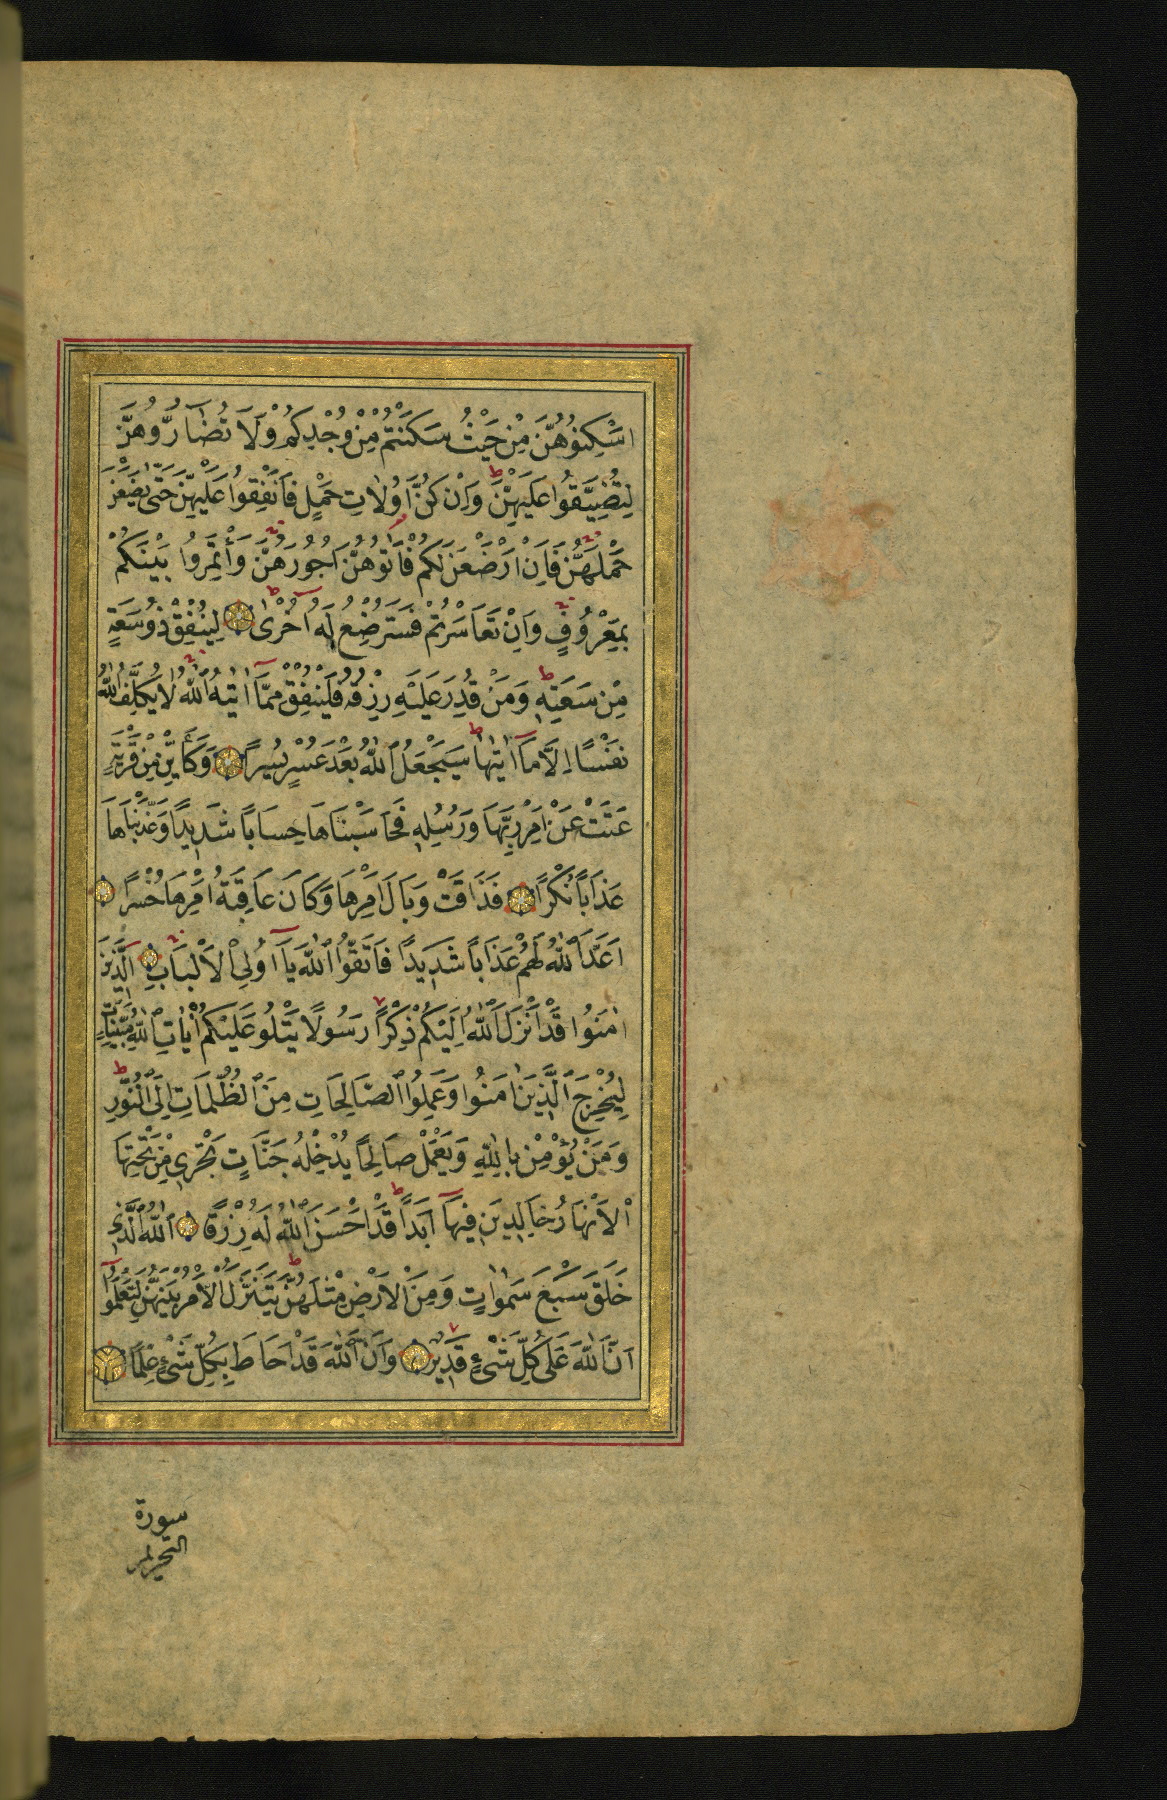 اَسْكِنُوهُنَّ مِنْ حَيْثُ سَكَنْتُمْ مِنْ وُجْدِكُمْ وَلَا تُضَارُّوهُنَّ
لِتُضَيِّقُوا عَلَيْهِنَّ وَاِنْ كُنَّ اُولَاتِ حَمْلٍ فَاَنْفِقُوا عَلَيْهِنَّ حَتّٰى يَضَعْنَ
حَمْلَهُنَّ فَاِنْ اَرْضَعْنَ لَكُمْ فَاٰتُوهُنَّ اُجُورَهُنَّ وَأْتَمِرُوا بَيْنَكُمْ
بِمَعْرُوفٍ وَاِنْ تَعَاسَرْتُمْ فَسَتُرْضِعُ لَهُ اُخْرٰى لِيُنْفِقْ ذُو سَعَةٍ
مِنْ سَعَتِهٖ وَمَنْ قُدِرَ عَلَيْهِ رِزْقُهُ فَلْيُنْفِقْ مِمَّا اٰتٰيهُ اللّٰهُ لَا يُكَلِّفُ اللّٰهُ
نَفْسًا اِلَّا مَا اٰتٰيهَا سَيَجْعَلُ اللّٰهُ بَعْدَ عُسْرٍ يُسْرًا وَكَاَيِّنْ مِنْ قَرْيَةٍ
عَتَتْ عَنْ اَمْرِ رَبِّهَا وَرُسُلِهٖ فَحَاسَبْنَاهَا حِسَابًا شَدِيدًا وَعَذَّبْنَاهَا
عَذَابًا نُكْرًا فَذَاقَتْ وَبَالَ اَمْرِهَا وَكَانَ عَاقِبَةُ اَمْرِهَا خُسْرًا
اَعَدَّ اللّٰهُ لَهُمْ عَذَابًا شَدِيدًا فَاتَّقُوا اللّٰهَ يَا اُولِي الْاَلْبَابِ الَّذِينَ
اٰمَنُوا قَدْ اَنْزَلَ اللّٰهُ اِلَيْكُمْ ذِكْرًا رَسُولًا يَتْلُو عَلَيْكُمْ اٰيَاتِ اللّٰهِ مُبَيِّنَاتٍ
لِيُخْرِجَ الَّذِينَ اٰمَنُوا وَعَمِلُوا الصَّالِحَاتِ مِنَ الظُّلُمَاتِ اِلَى النُّورِ
وَمَنْ يُؤْمِنْ بِاللّٰهِ وَيَعْمَلْ صَالِحًا يُدْخِلْهُ جَنَّاتٍ تَجْرِي مِنْ تَحْتِهَا
الْاَنْهَارُ خَالِدِينَ فِيهَا اَبَدًا قَدْ اَحْسَنَ اللّٰهُ لَهُ رِزْقًا اَللّٰهُ الَّذِي
خَلَقَ سَبْعَ سَمٰوَاتٍ وَمِنَ الْاَرْضِ مِثْلَهُنَّ يَتَنَزَّلُ الْاَمْرُ بَيْنَهُنَّ لِتَعْلَمُوا
اَنَّ اللّٰهَ عَلٰى كُلِّ شَيْءٍ قَدِيرٌ وَاَنَّ اللّٰهَ قَدْ اَحَاطَ بِكُلِّ شَيْءٍ عِلْمًا
سورة
التحريم